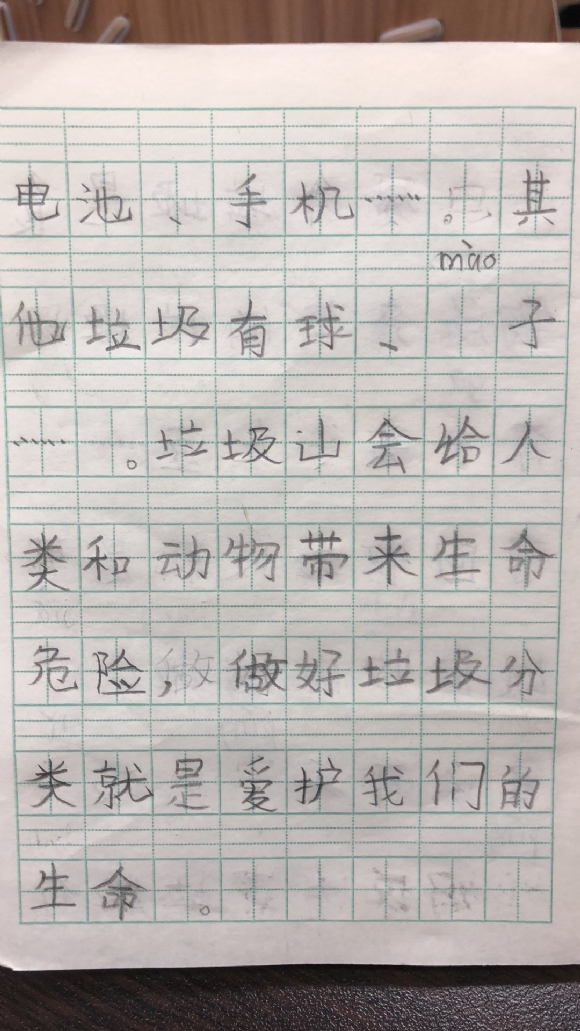 电池、手机……。其
mào
他垃圾有球、 子
……。垃圾让会给人
类和动物带来生命
危险,做好垃圾分
类就是爱护我们的
生命。